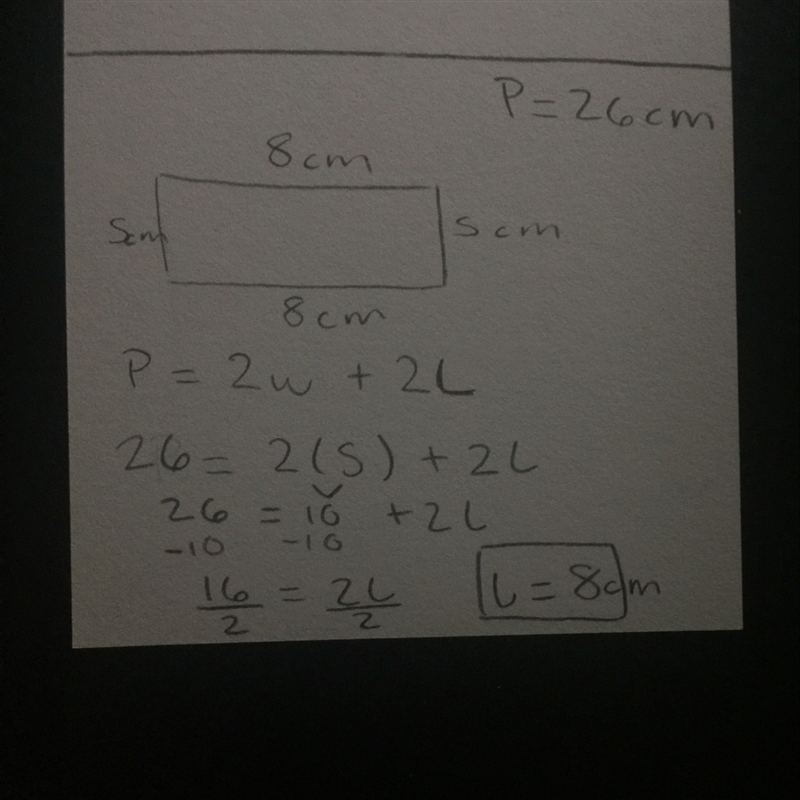 P = 26cm
8cm
5cm
5cm
8cm
P = 2w + 2L
26 = 2(5) + 2L
26 = 10 + 2L
-10 -10
16/2 = 2L/2
L = 8cm